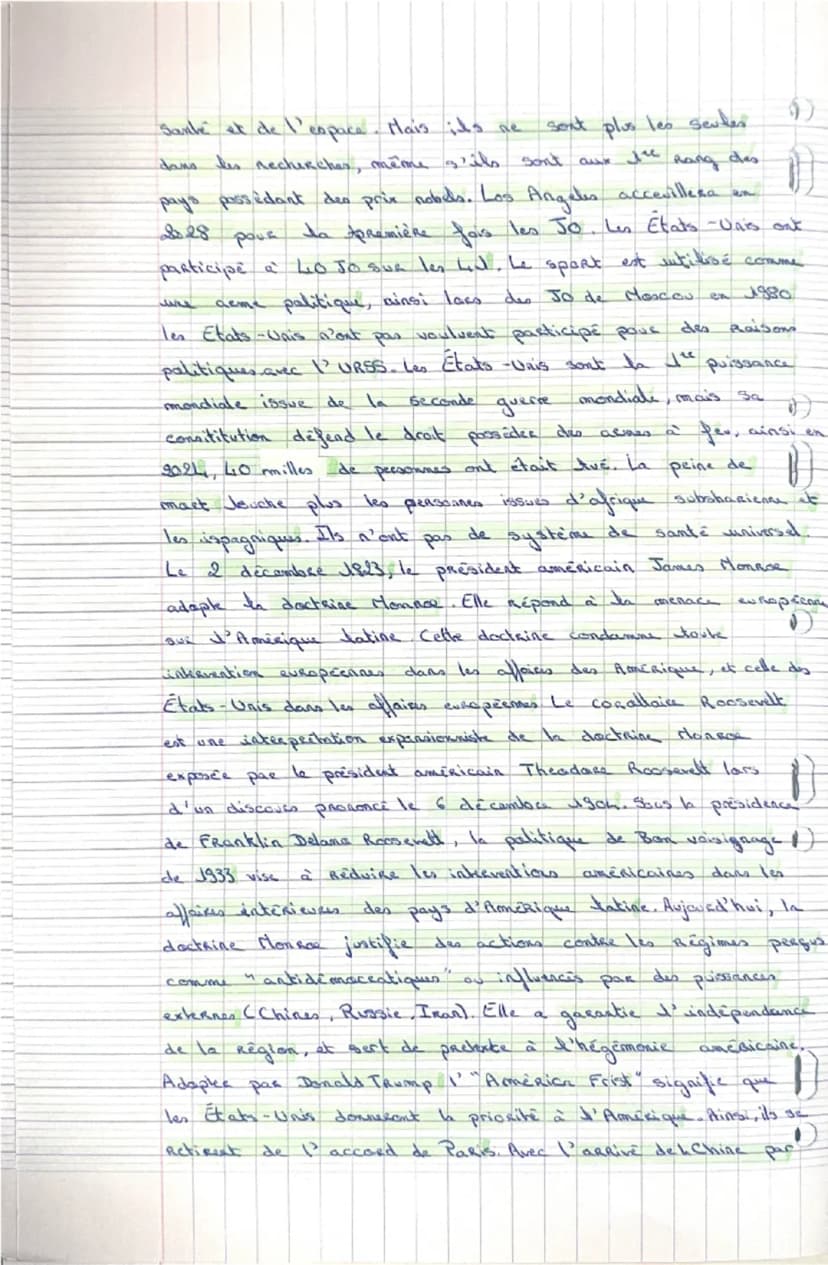 Santé et de l'espace. Mais ils ne sont plus les seules
dans les recherches, même s'ils sont aux 1er rang des
pays possèdant des prix nobels. Los Angeles accevillera en
2028 pour la première fois les JO. Les États-Unis ont
participé à 40 JO sur les 42. Le sport est utilisé comme
une arme politique, ainsi lors des JO de Moscou en 1980
les Etats-Unis n'ont pas voulvent participé pour des raisons
politiques avec l'URSS. Les États-Unis sont la 1re puissance
mondiale issue de la seconde guerre mondiale, mais sa
constitution défend le droit posséder des armes à feu, ainsi en
2021, 40 milles de personnes ont était tué. La peine de
mort touche plus les personnes issues d'afrique subsharienne et
les ispagniques. Ils n'ont pas de système de santé universel.
Le 2 décembre 1823, le président américain James Monroe
adopte la doctrine Monroe. Elle répond à la menace européenne
sur l'Amérique latine. Cette doctrine condamne toute
intervention européennes dans les affaires des Amérique, et celle des
États-Unis dans les affaires européennes Le corollaire Roosevelt
est une interprétation expansionniste de la doctrine Monroe
exposée par le président américain Theodore Roosevelt lors
d'un discours prononcé le 6 décembre 1904. Sous la présidence
de Franklin Delano Roosevelt, la politique de Bon voisignage
de 1933 vise à réduire les interventions américaines dans les
affaires intérieures des pays d'Amérique latine. Aujourd'hui, la
doctrine Monroe justifie des actions contre les régimes perçus
comme "antidémocratiques" ou influencés par des puissances
externes (Chines, Russie, Iran). Elle a garantie l'indépendance
de la région, et sert de prétexte à l'hégémonie américaine.
Adoptée par Donald Trump l'"América Frist" signifie que
les États-Unis donneront la priorité à l'Amérique. Ainsi, ils se
retirent de l'accord de Paris. Avec l'arrivé de la Chine par